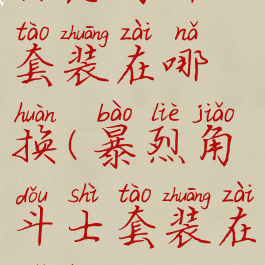 tào zhuāng zài nǎ
套装在哪
huàn bào liè jiǎo
换(暴烈角
dǒu shì tào zhuāng zài
斗士套装在